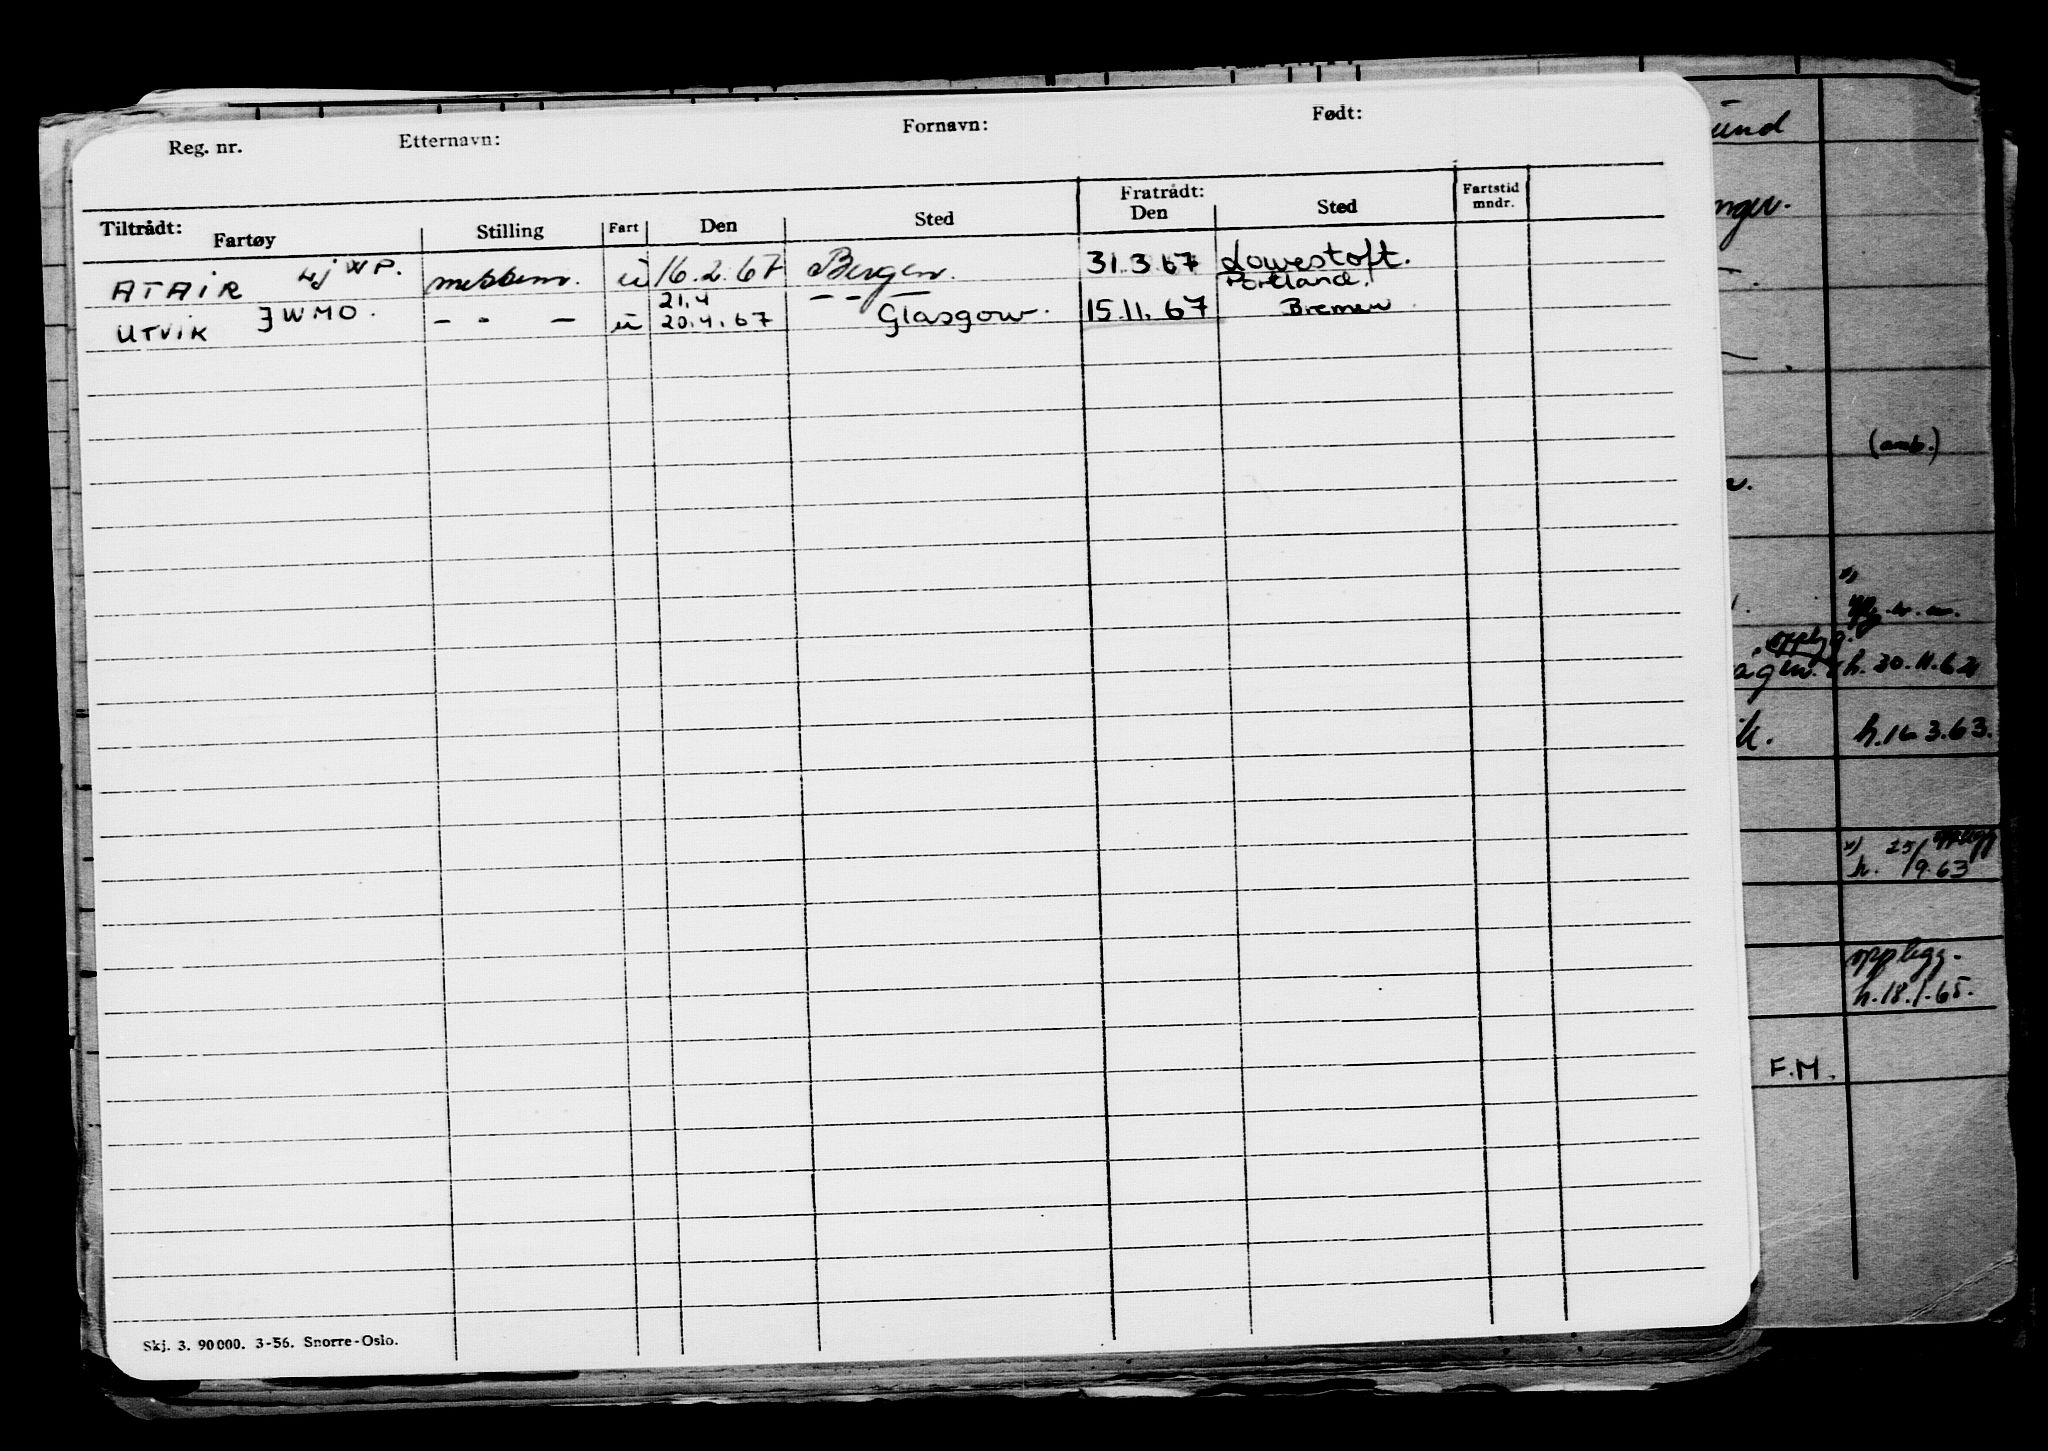 Reg. nr. Etternavn: Fornavn: Født:
Tiltrådt: Fratrådt:
Fartøy Stilling Fart Den Sted Den Sted Fartstid mndr.
ATAIR LJWP. u 16.2.67 Bergen. 31.3.67 Lowestoft.
21.4 – – — Portland.
UTVIK JWMO. – - — u 20.4.67 Glasgow. 15.11.67 Bremen
Skj. 3. 90000. 3-56. Snorre-Oslo.
und
nger.
(amb.)
h. 30.11.62
ik. h. 16.3.63.
opplegg
h. 25/9.63
opplegg.
h. 18.1.65.
F.M.